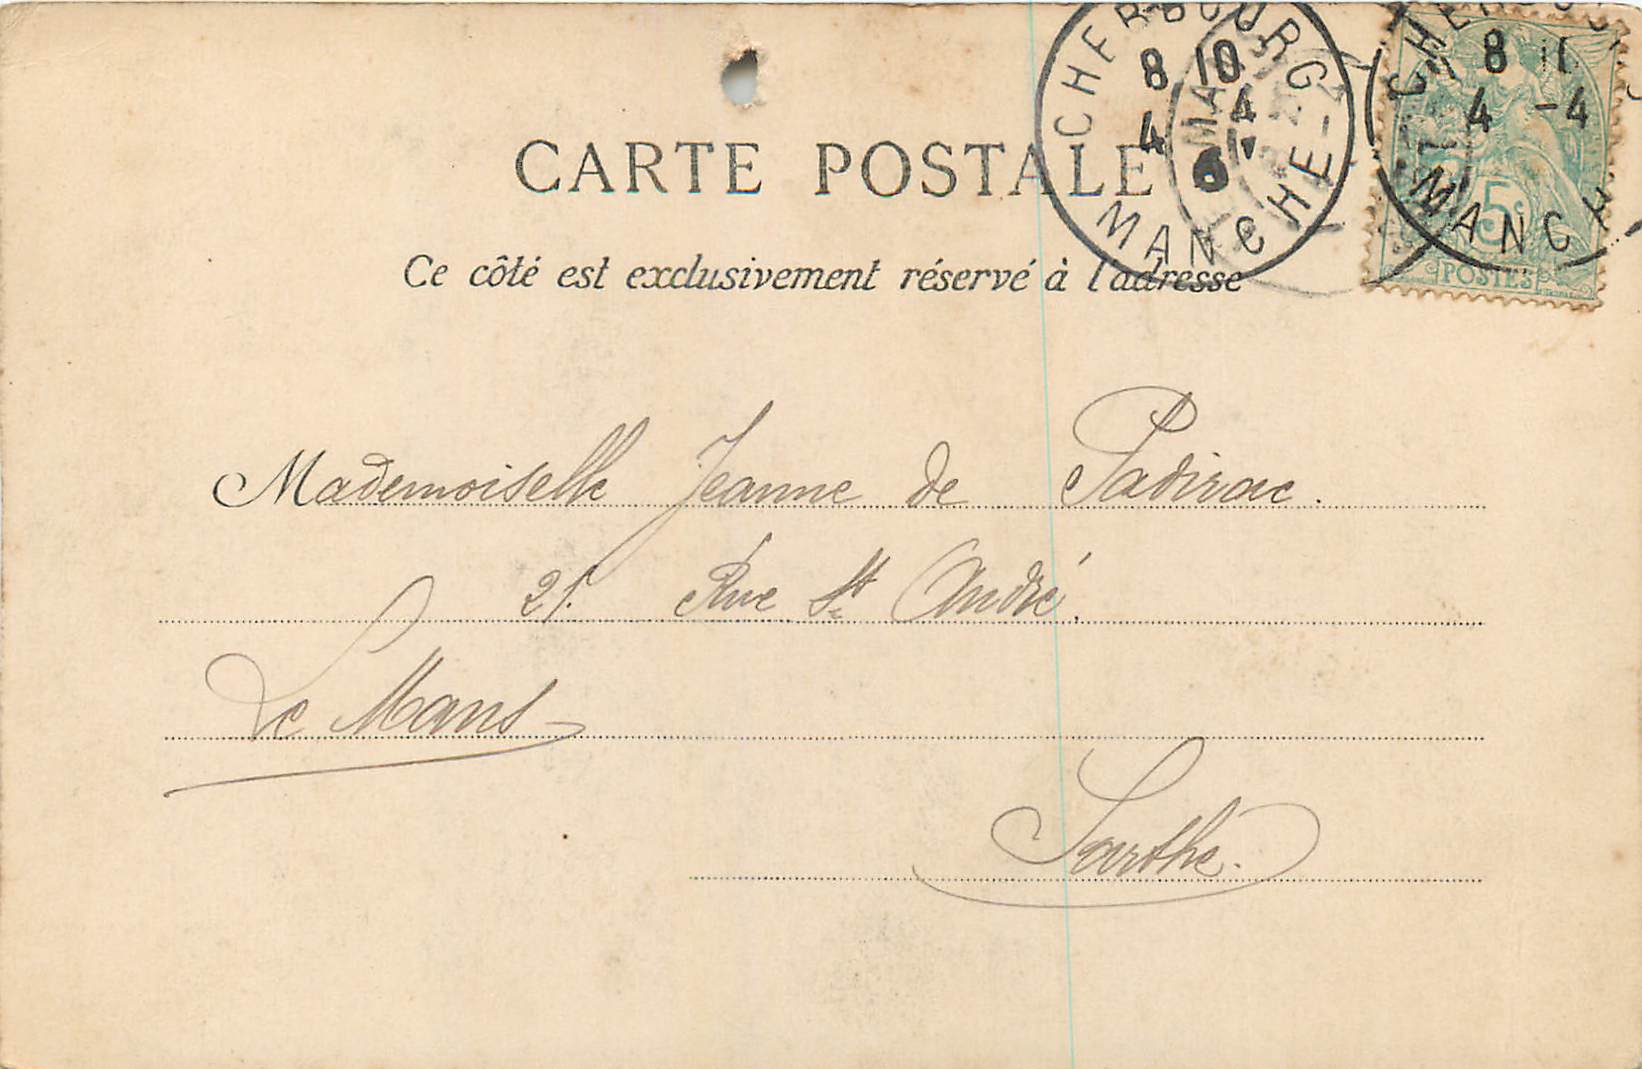 CARTE POSTALE
Ce côté est exclusivement réservé à l'adresse
CHERBOURG
8 10
4 4
6
MANCHE
8 11
4 -4
MANCH
5c
POSTES
Mademoiselle Jeanne de Padirac.
21. Rue St André.
Le Mans
Sarthe.